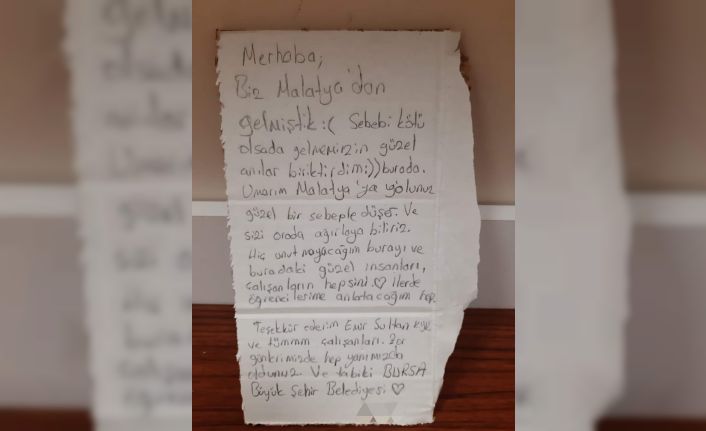 Merhaba,
Biz Malatya'dan
gelmiştik :( Sebebi kötü
olsada gelmemizin güzel
anılar biriktirdim :)) burada.
Umarım Malatya'ya yolunuz
güzel bir sebeple düşer. Ve
sizi orada ağırlaya biliriz.
Hiç unutmayacağım burayı ve
buradaki güzel insanları,
çalışanların hepsini ♡ ilerde
öğrencilerime anlatacağım hep
Teşekkür ederim Emir Sultan
ve tümmm çalışanları. Zor
günlerimizde hep yanımızda
oldunuz. Ve tabiki BURSA
Büyük Şehir Belediyesi ♡